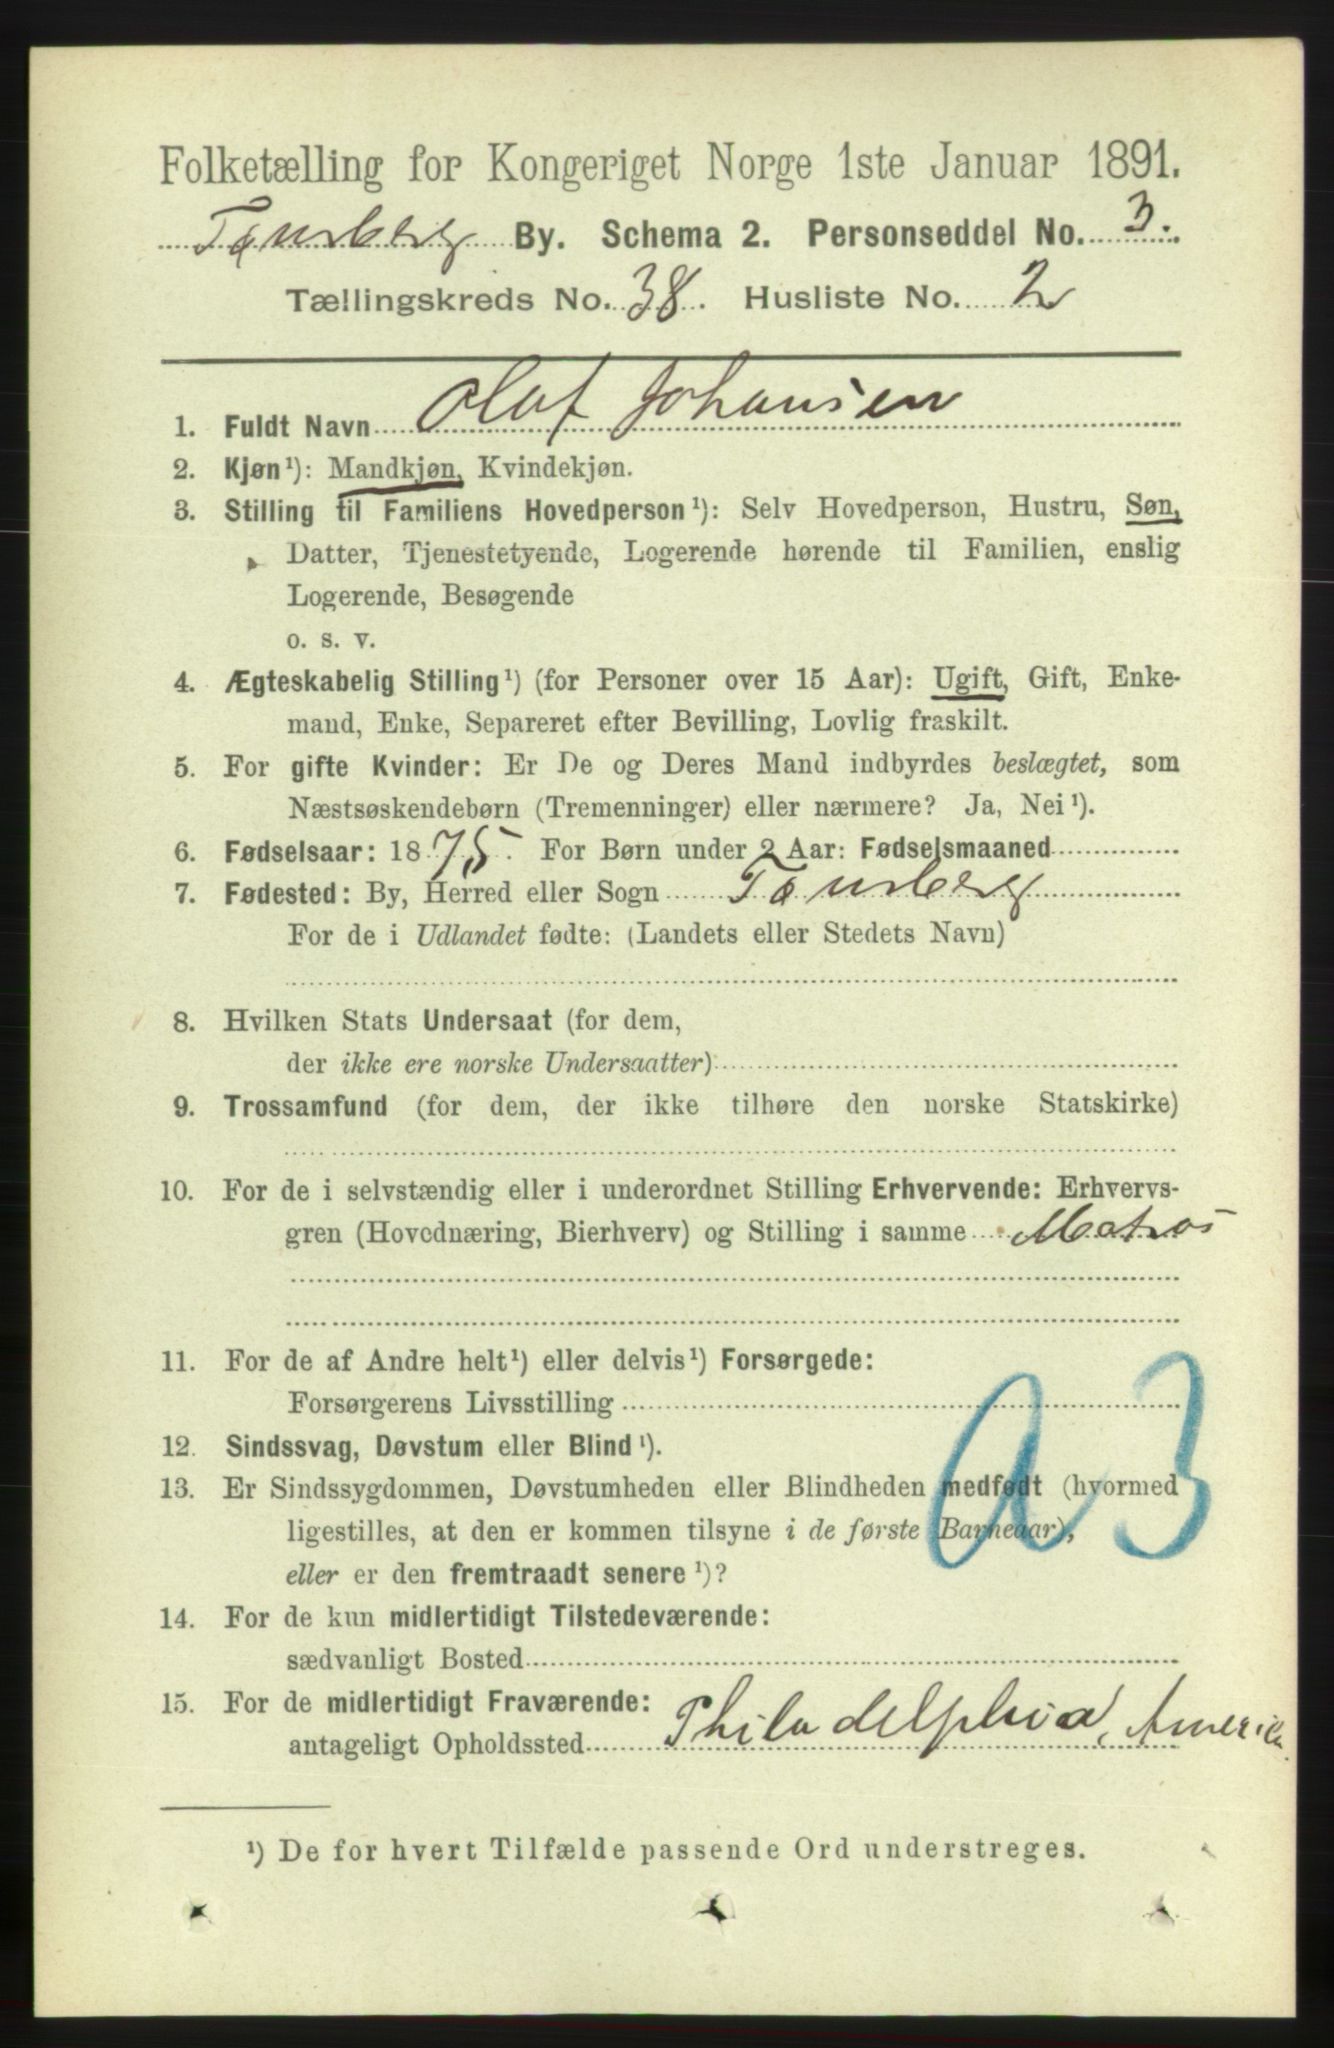 Folketælling for Kongeriget Norge 1ste Januar 1891.
Tønsberg By. Schema 2. Personseddel No. 3.
Tællingskreds No. 38. Husliste No. 2
1. Fuldt Navn Olaf Johansen
2. Kjøn¹): Mandkjøn, Kvindekjøn.
3. Stilling til Familiens Hovedperson¹): Selv Hovedperson, Hustru, Søn,
Datter, Tjenestetyende, Logerende hørende til Familien, enslig
Logerende, Besøgende
o. s. v.
4. Ægteskabelig Stilling¹) (for Personer over 15 Aar): Ugift, Gift, Enke-
mand, Enke, Separeret efter Bevilling, Lovlig fraskilt.
5. For gifte Kvinder: Er De og Deres Mand indbyrdes beslægtet, som
Næstsøskendebørn (Tremenninger) eller nærmere? Ja, Nei¹).
6. Fødselsaar: 1875. For Børn under 2 Aar: Fødselsmaaned
7. Fødested: By, Herred eller Sogn Tønsberg
For de i Udlandet fødte: (Landets eller Stedets Navn)
8. Hvilken Stats Undersaat (for dem,
der ikke ere norske Undersaatter)
9. Trossamfund (for dem, der ikke tilhøre den norske Statskirke)
10. For de i selvstændig eller i underordnet Stilling Erhvervende: Erhvervs-
gren (Hovednæring, Bierhverv) og Stilling i samme Matros
11. For de af Andre helt¹) eller delvis¹) Forsørgede:
Forsørgerens Livsstilling
12. Sindssvag, Døvstum eller Blind¹).
13. Er Sindssygdommen, Døvstumheden eller Blindheden medfødt (hvormed
ligestilles, at den er kommen tilsyne i de første Barneaar),
eller er den fremtraadt senere¹)?
a 3
14. For de kun midlertidigt Tilstedeværende:
sædvanligt Bosted
15. For de midlertidigt Fraværende:
antageligt Opholdssted Philadelphia, America.
¹) De for hvert Tilfælde passende Ord understreges.